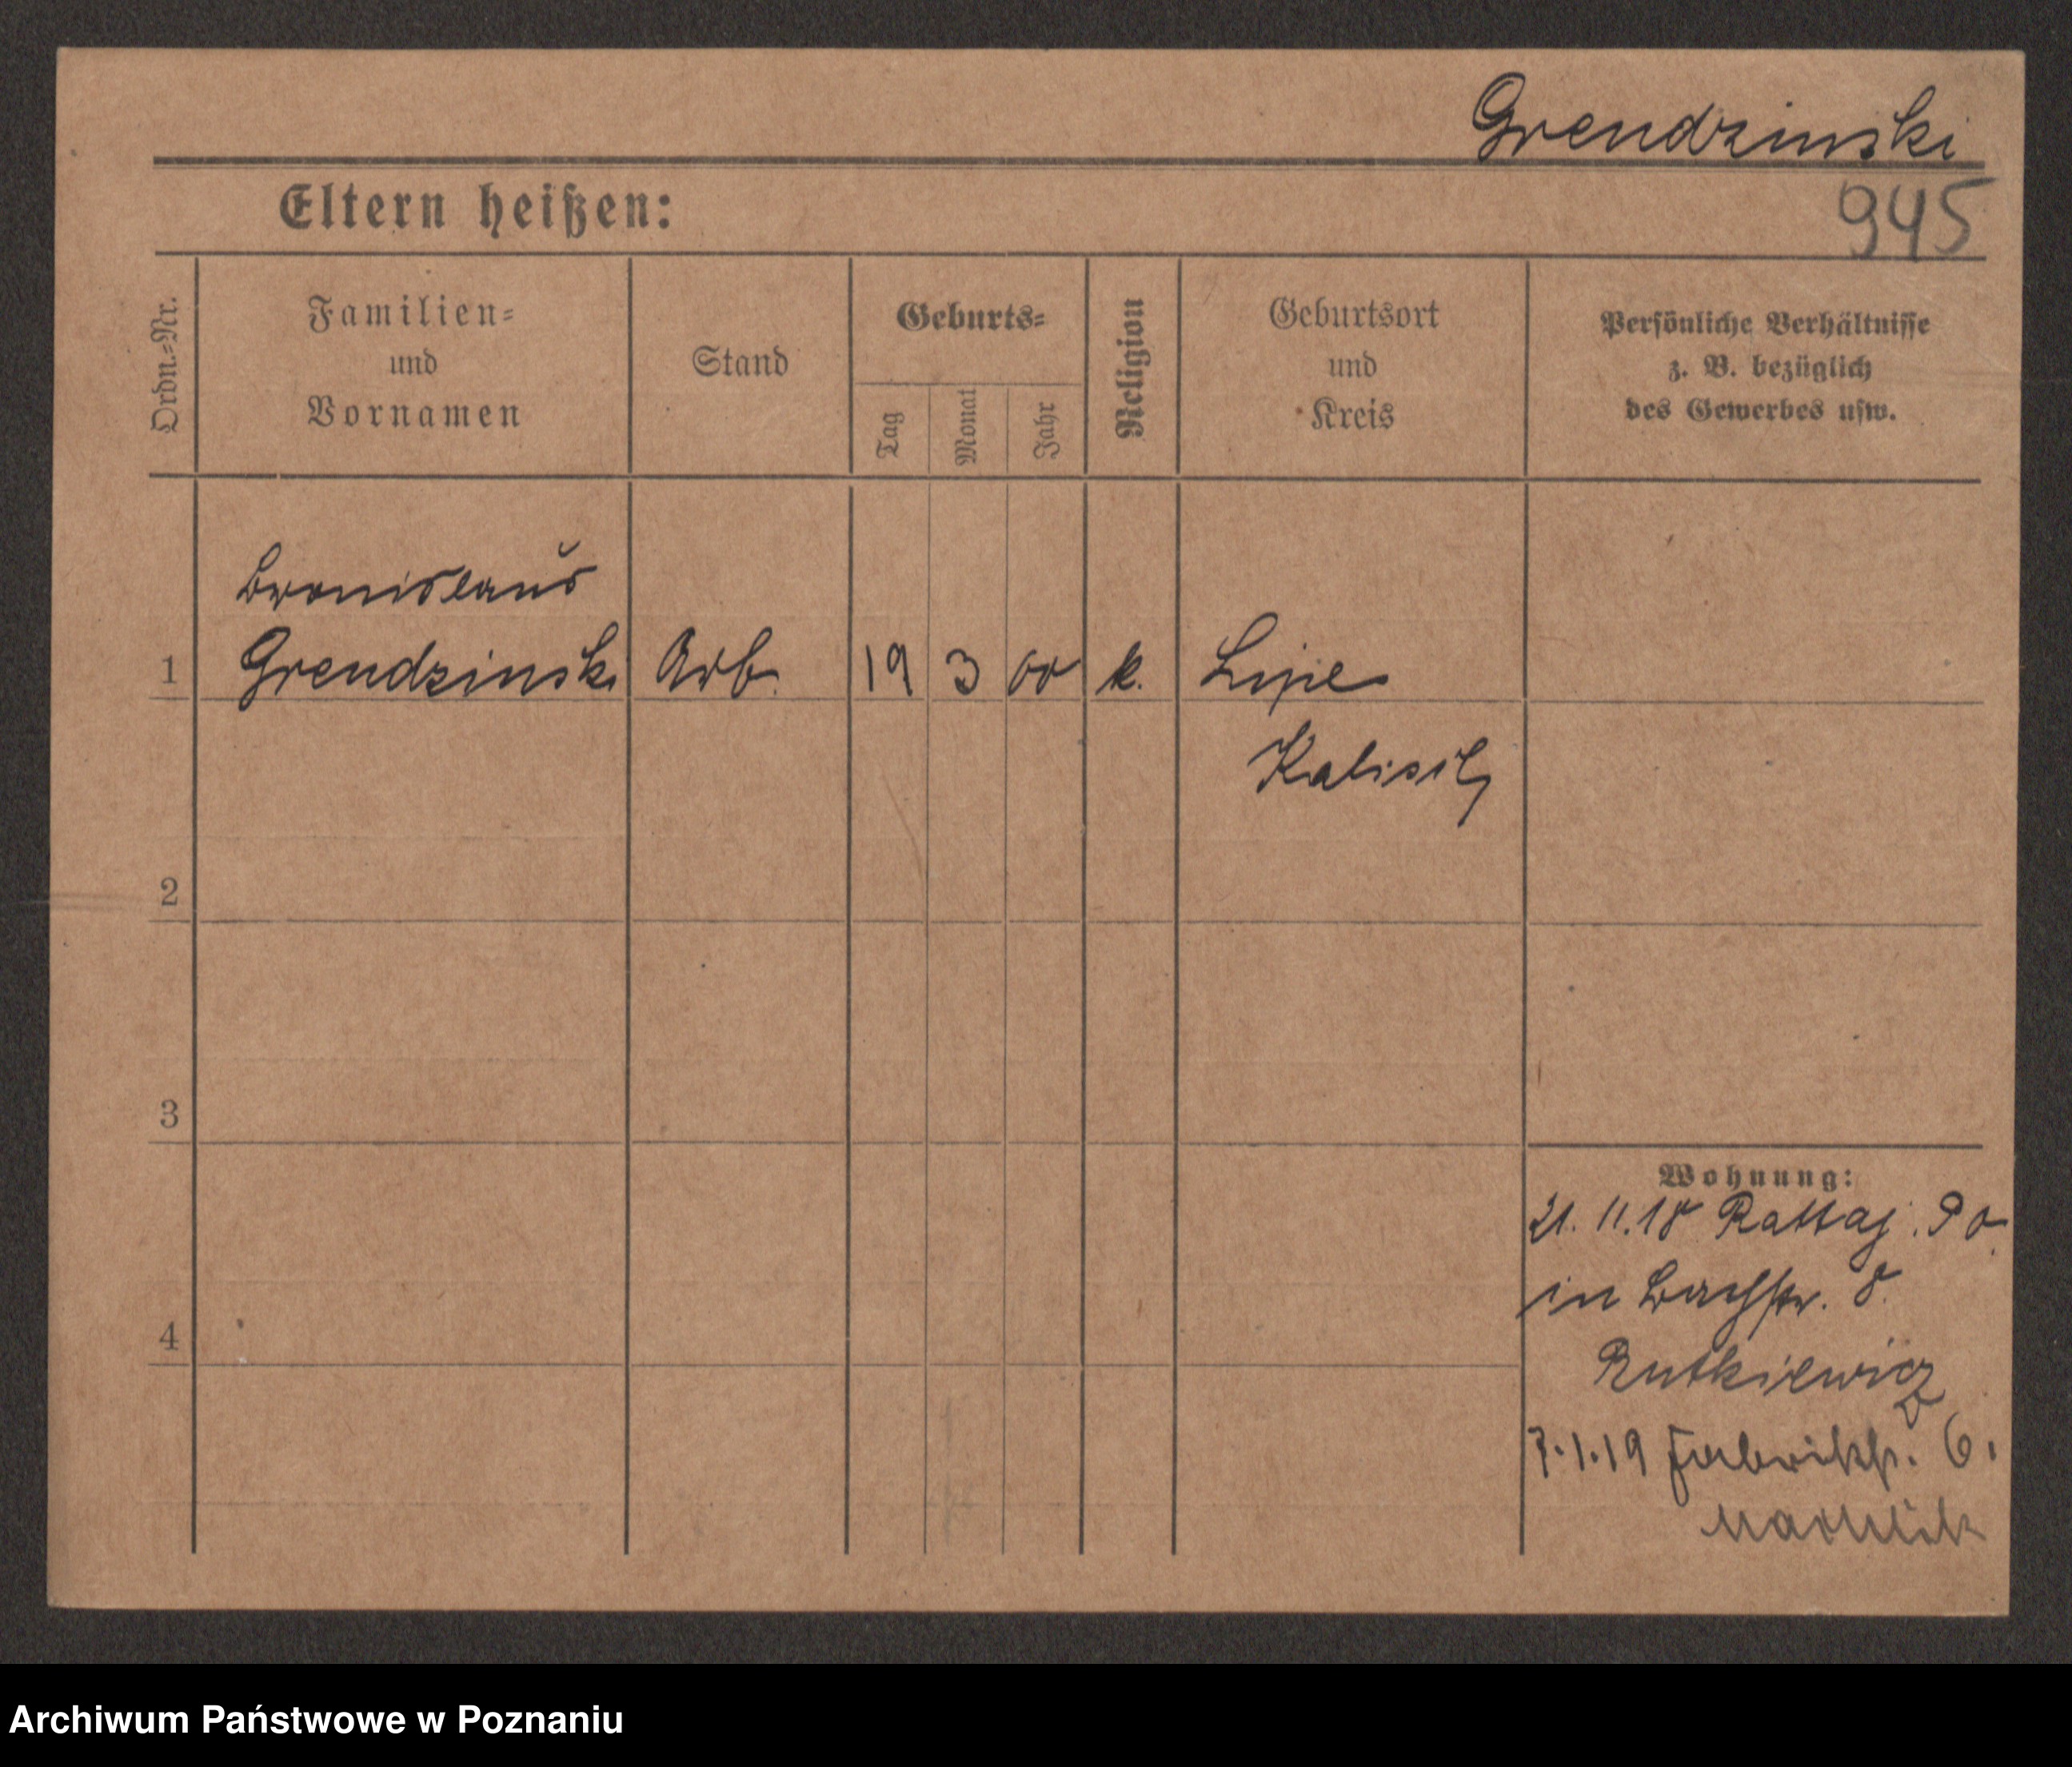 Grendzinski
945
Eltern heißen:
Ordn.=Nr.
Familien=
und
Vornamen
Stand
Geburts=
Tag
Monat
Jahr
Religion
Geburtsort
und
Kreis
Persönliche Verhältnisse
z. B. bezüglich
des Gewerbes usw.
Bronislaus
1 Grendzinski Arb. 19 3 00 k. Lipe
Kalisch
2
3
4
Wohnung:
21. 11. 18 Rattaj. 90.
in Bachstr. 8.
Rutkiewicz
7. 1. 19 Fabrikstr. 6.